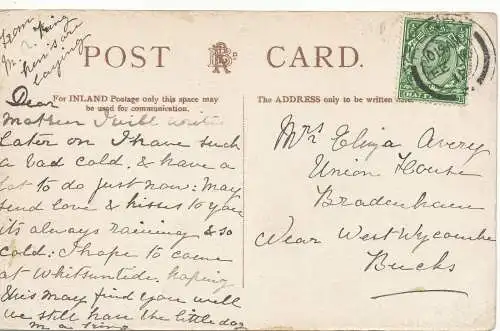 From
M. King
hen's are
laying
POST CARD.
For INLAND Postage only this space may
be used for communication.
The ADDRESS only to be written here
HALF
Dear
Mother I will write
later on I have such
a bad cold. & have a
lot to do just now: May
send love & kisses to you
its always raining & so
cold: I hope to come
at Whitsuntide. hoping
this may find you well
we still have the little dog
M. a King
Mrs Eliza Avery
Union House
Bradenham
Near West Wycombe
Bucks